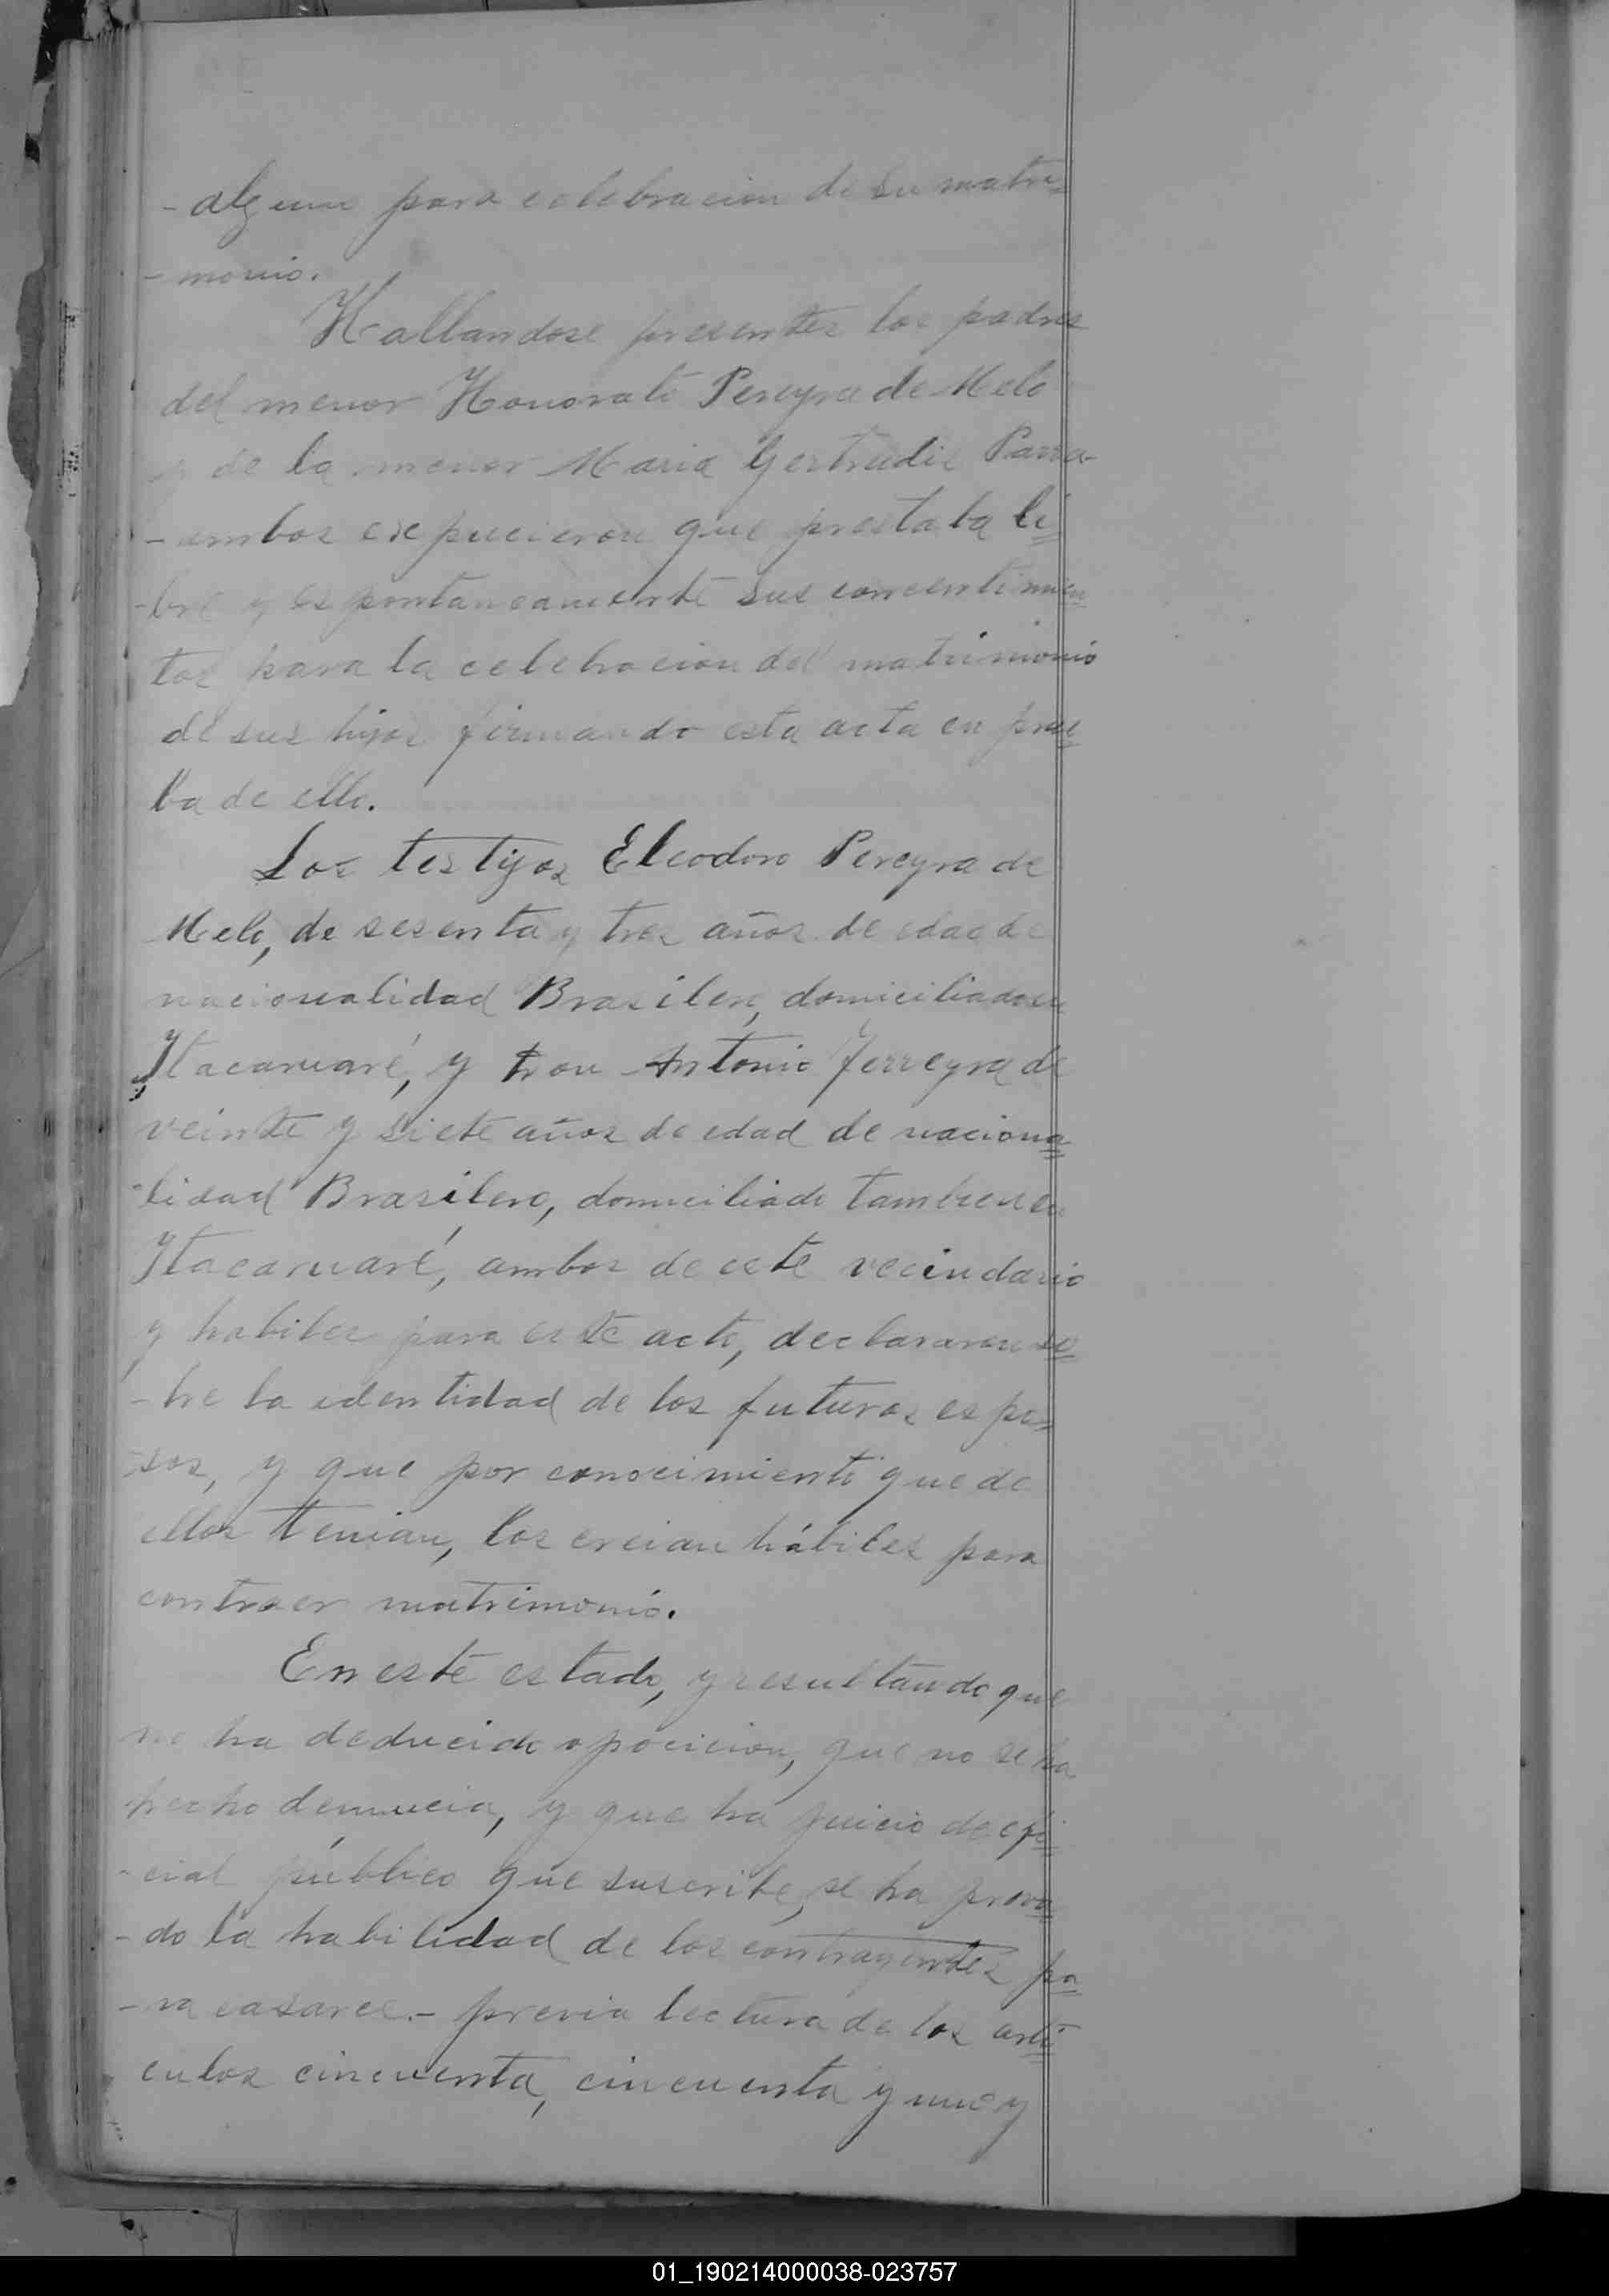 - alguno para celebracion de su matri=
- monio.
Hallandose presentes los padres
del menor Honorato Pereyra de Melo
y de la menor Maria Gertrudis Parra-
- ambos expucieron que prestaba li=
-bre y espontaneamente sus concentimien=
tos para la celebracion del matrimonio
de sus hijos firmando esta acta en prue=
ba de ello.
Los testijos Eleodoro Pereyra de
Melo, de sesenta y tres años de edad de
nacionalidad Brasilero, domiciliado en
Itacaruaré, y Don Antonio Ferreyra de
veinte y siete años de edad de naciona=
-lidad Brasilero, domiciliado tambien en
Itacaruaré, ambos de este vecindario
y habiles para este acto, declararon so=
-bre la identidad de los futuros espo=
-sos, y que por conocimiento que de
ellos tenian, los creian hábiles para
contraer matrimonio.
En este estado, y resultando que
no ha deducido opocicion, que no se ha
hecho denuncia, y que ha juicio de ofi=
-cial público que suscribe, se ha prova=
- do la habilidad de los contrayentes pa=
- ra casarce.- previa lectura de los arti=
culos cincuenta, cincuenta y uno y
01_190214000038-023757